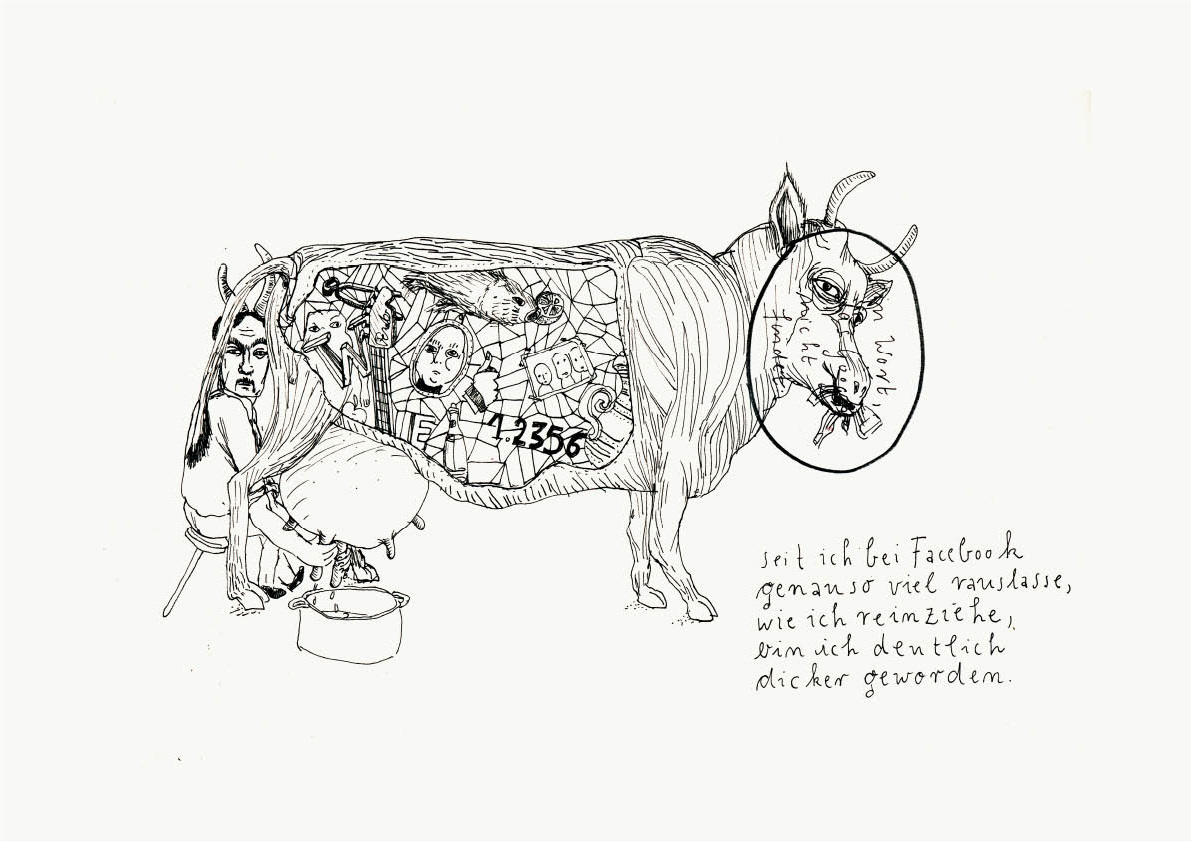 n Wort,
nicht
findet.
E
1.2356
seit ich bei Facebook
genauso viel rauslasse,
wie ich reinziehe,
bin ich deutlich
dicker geworden.